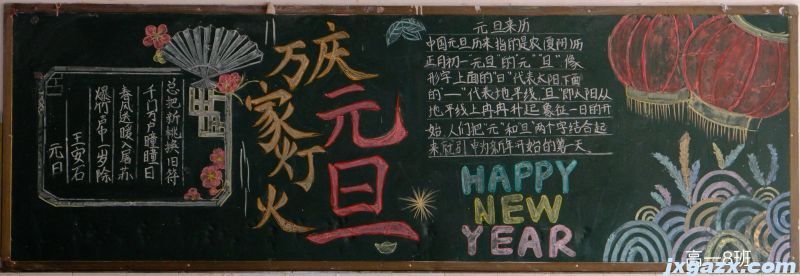 元日
王安石
爆竹声中一岁除
春风送暖入屠苏
千门万户曈曈日
总把新桃换旧符
庆元旦
万家灯火
元旦来历
中国元旦历来指的是农(夏阴)历
正月初一元旦"的"元""旦"像
形字上面的"日"代表太阳下面
的"一"代表地平线"旦"即太阳从
地平线上冉冉升起 象征一日的开
始 人们把"元"和旦"两个字结合起
来就引申为新年开始的第一天
HAPPY
NEW
YEAR
高一8班
ixgazx.com